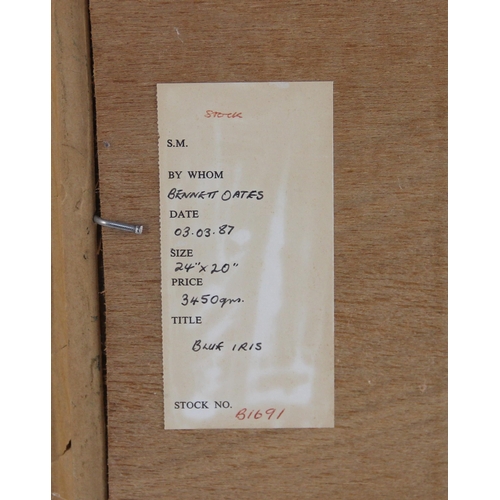 STOCK
S.M.
BY WHOM
BENNETT OATES
DATE
03.03.87
SIZE
24"x 20"
PRICE
3450gns.
TITLE
BLUE IRIS
STOCK NO. B1691